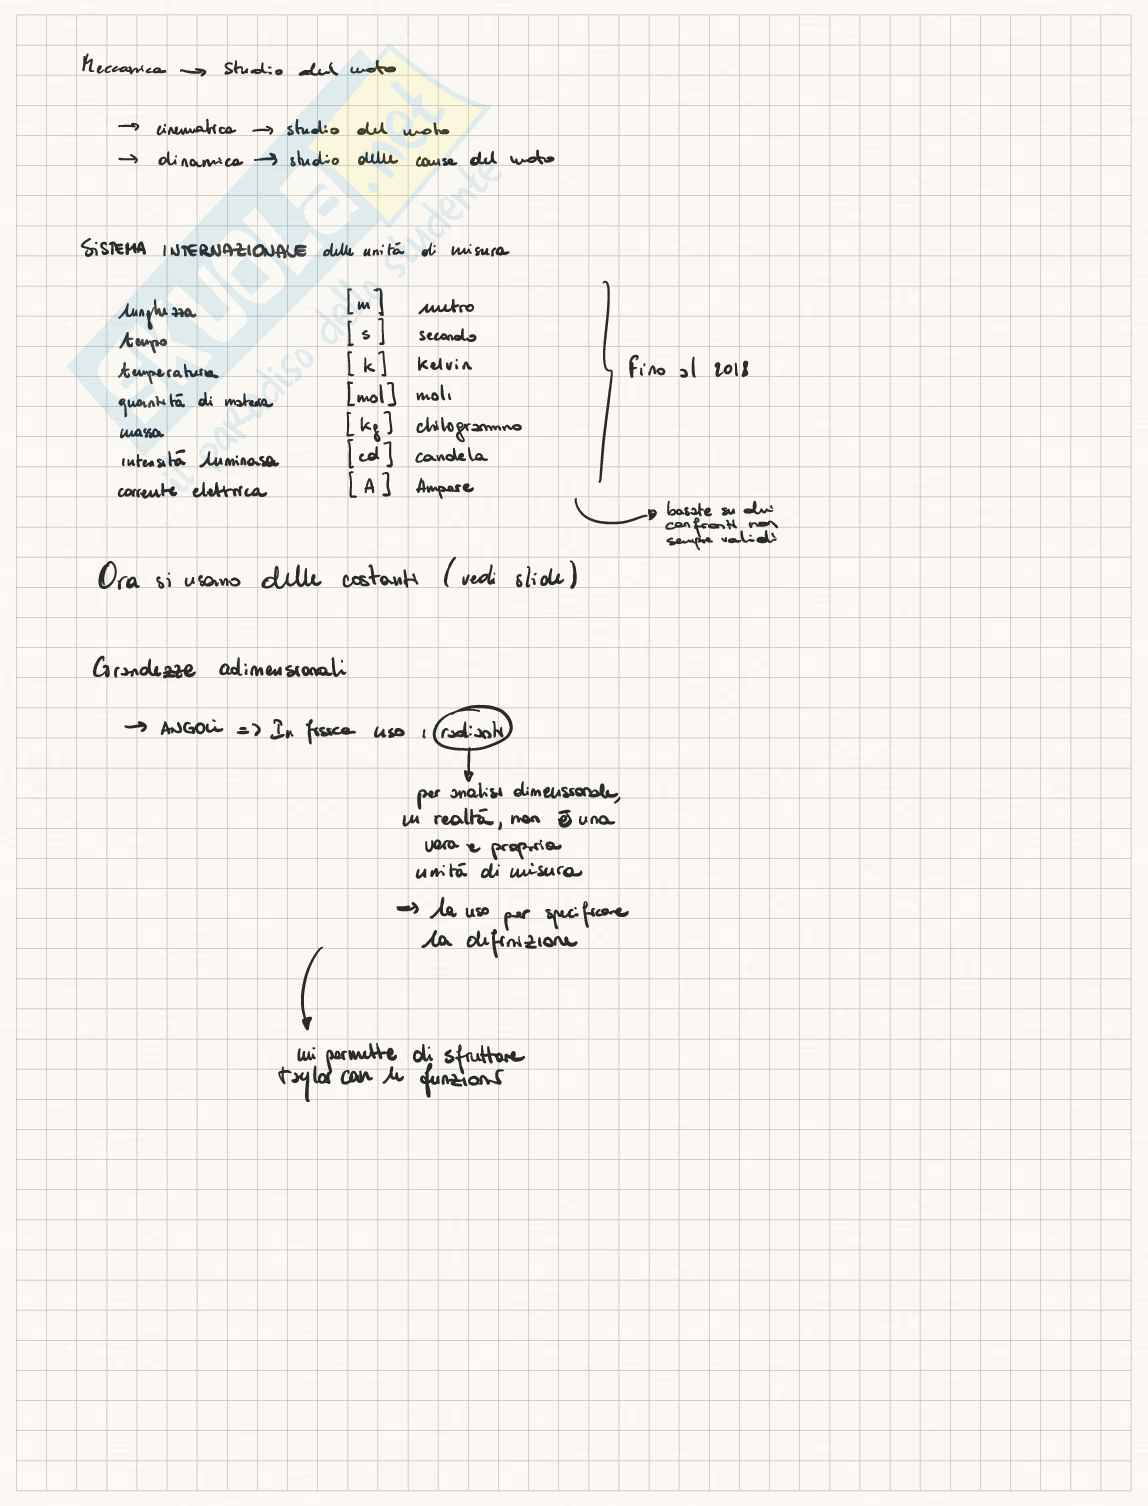 Meccanica → Studio del moto
→ cinematica → studio del moto
→ dinamica → studio delle cause del moto
SISTEMA INTERNAZIONALE delle unità di misura
lunghezza [m] metro
tempo [s] secondo
temperatura [k] Kelvin
quantità di materia [mol] moli
massa [kg] chilogrammo
intensità luminosa [cd] candela
corrente elettrica [A] Ampere
Fino al 2018
basate su dei
confronti non
sempre validi
Ora si usano delle costanti (vedi slide)
Grandezze adimensionali
→ ANGOLI => In fisica uso i radianti
per analisi dimensionale,
in realtà, non è una
vera e propria
unità di misura
→ la uso per specificare
la definizione
mi permette di sfruttare
Taylor con le funzioni
SKUOLA.net
il paradiso dello studente